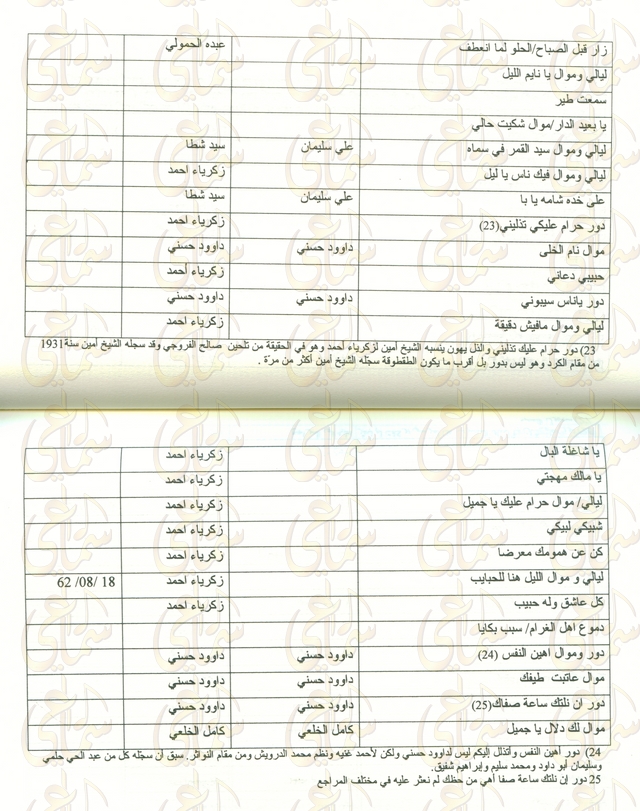 زار قبل الصباح/الحلو لما انعطف عبده الحمولي
ليالي وموال يا نايم الليل
سمعت طير
يا بعيد الدار/موال شكيت حالي
ليالي وموال سيد القمر في سماه علي سليمان سيد شطا
ليالي وموال فيك ناس يا ليل زكرياء احمد
على خده شامه يا با علي سليمان سيد شطا
دور حرام عليكي تذليني(23) زكرياء احمد
موال نام الخلى داوود حسني داوود حسني
حبيبي دعاني زكرياء أحمد
دور ياناس سيبوني داوود حسني داوود حسني
ليالي وموال مافيش دقيقة زكرياء احمد
23) دور حرام عليك تذليني والذل يهون ينسبه الشيخ أمين لزكرياء أحمد وهو في الحقيقة من تلحين صالح الفروجي وقد سجله الشيخ أمين سنة1931
من مقام الكرد وهو ليس بدور بل أقرب ما يكون الطقطوقة سجّله الشيخ أمين أكثر من مرّة .
يا شاغلة البال زكرياء احمد
يا مالك مهجتي زكرياء احمد
ليالي/ موال حرام عليك يا جميل زكرياء احمد
شبيكي لبيكي زكرياء احمد
كن عن همومك معرضا زكرياء احمد
ليالي و موال الليل هنا للحبايب زكرياء احمد 18 /08/ 62
كل عاشق وله حبيب زكرياء احمد
دموع اهل الغرام/ سبب بكايا
دور وموال اهين النفس (24) داوود حسني داوود حسني
موال عاتبت طيفك داوود حسني داوود حسني
دور ان نلتك ساعة صفاك(25) داوود حسني داوود حسني
موال لك دلال يا جميل كامل الخلعي كامل الخلعي
24) دور اهين النفس وأتذلل إليكم ليس لداوود حسني ولكن لأحمد غنيه ونظم محمد الدرويش ومن مقام النواثر. سبق أن سجّله كل من عبد الحي حلمي
وسليمان أبو داود ومحمد سليم وإبراهيم شفيق.
25 دور إن نلتك ساعة صفا أهي من حظك لم نعثر عليه في مختلف المراجع